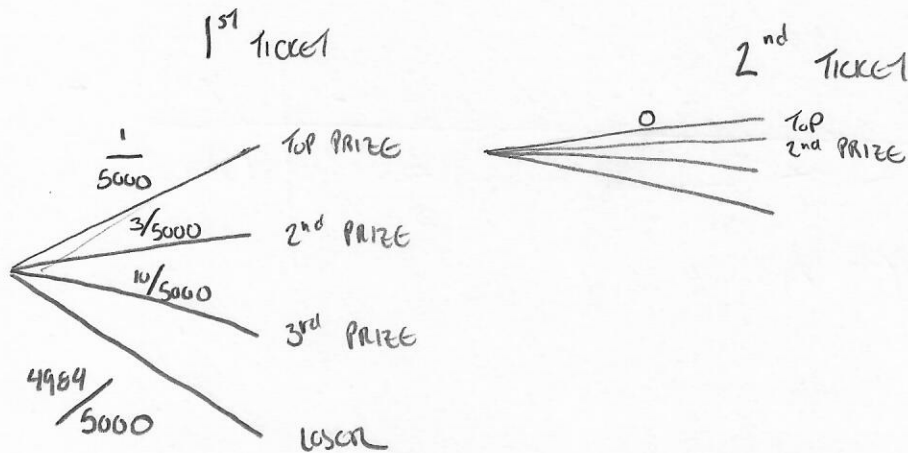 1st TICKET
2nd TICKET
1/5000
TOP PRIZE
3/5000
2nd PRIZE
10/5000
3rd PRIZE
4984/5000
LOSER
0
TOP
2nd PRIZE